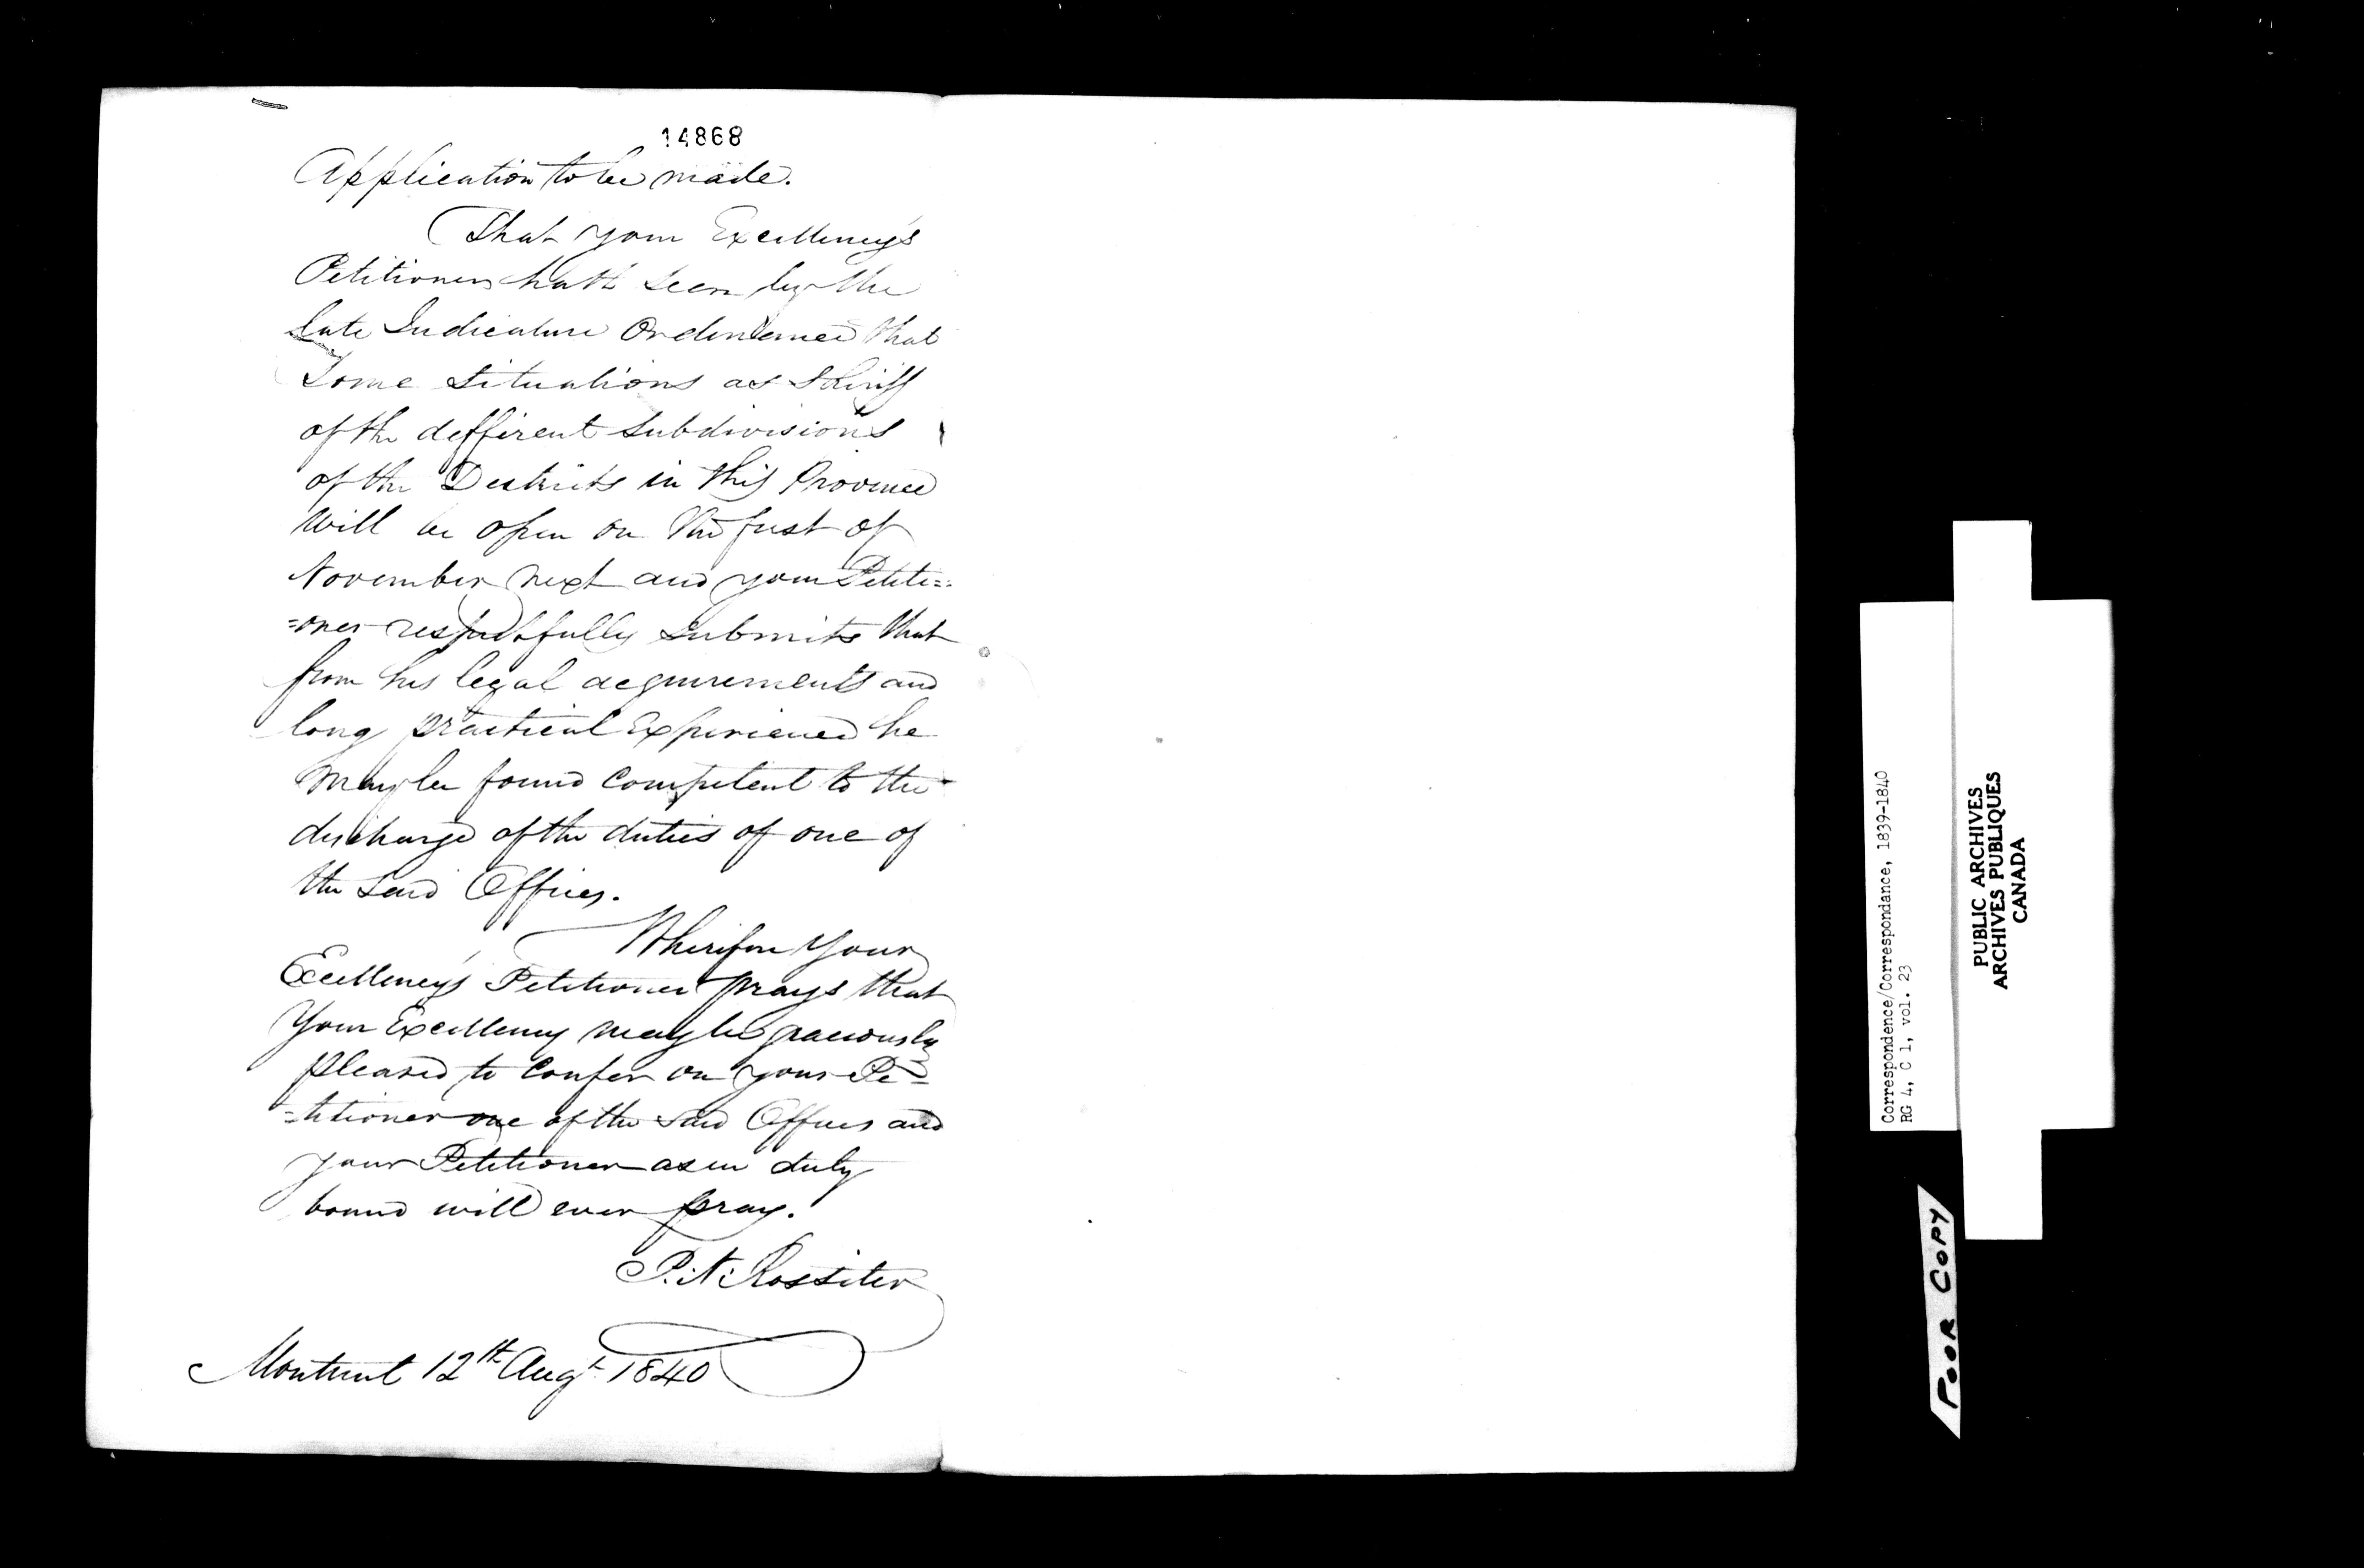 14868
Application to be made.
That your Excellency's
Petitioner hath seen by the
late Judicature Ordinance that
Some Situations as Sheriff
of the defferent Subdivisions
of the Districts in this Province
Will be open on the first of
November next and your Petiti=
=oner respectfully Submits that
from his legal acquirements and
long practical Experience he
may be found Competent to the
discharge of the duties of one of
the Said Offices.
Wherefore Your
Excellency's Petitioner prays that
Your Excellency may be graciously
pleased to Confer on your Pe=
=titioner one of the said Offices and
your Petitioner as in duty
bound will ever pray.
P. N: Rossiter
Montreal 12th Augt 1840
Correspondence/Correspondance, 1839-1840
RG 4, C 1, vol. 23
PUBLIC ARCHIVES
ARCHIVES PUBLIQUES
CANADA
POOR COPY